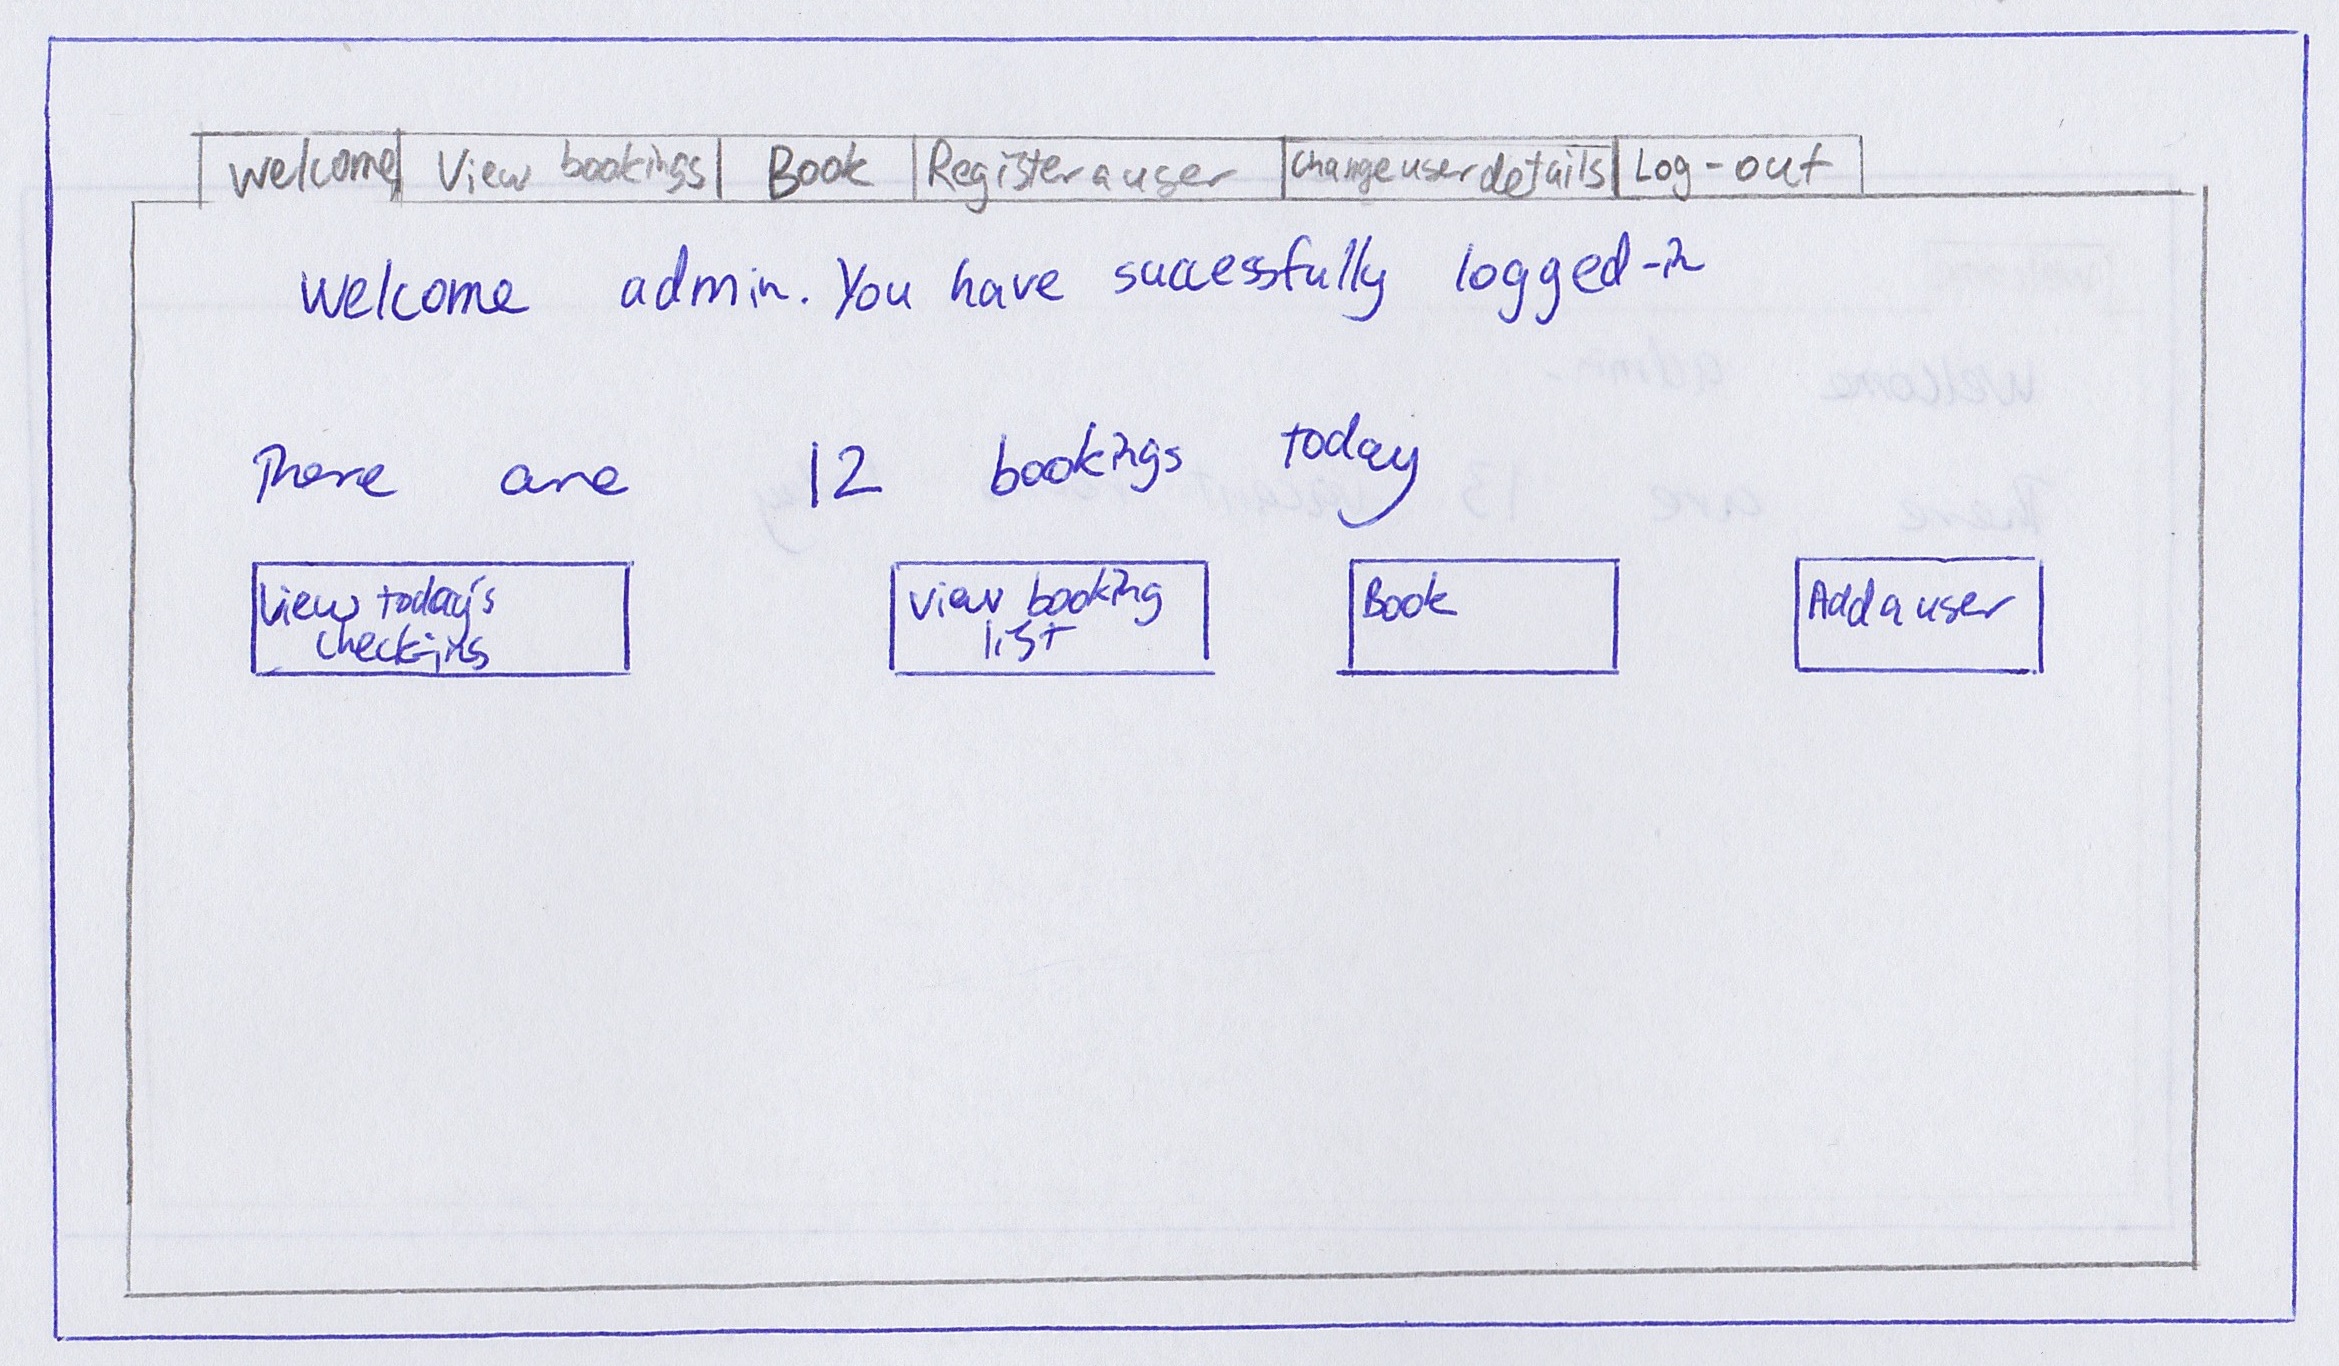 Welcome View bookings Book Register a user Change user details Log-out
Welcome admin. You have successfully logged-in
There are 12 bookings today
View today's
check-ins
View booking
list
Book
Add a user